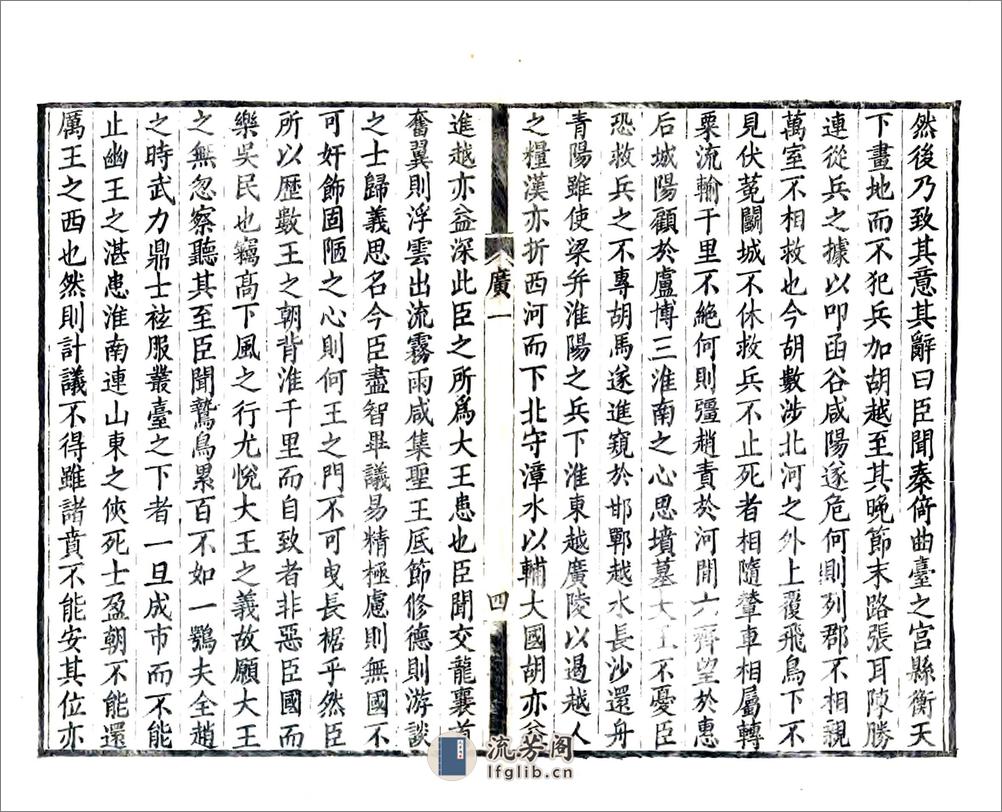 然後乃致其意其辭曰臣聞秦倚曲臺之宮縣衡天
下畫地而不犯兵加胡越至其晚節末路張耳陳勝
連從兵之據以叩函谷咸陽遂危何則列郡不相親
萬室不相救也今胡數涉北河之外上覆飛鳥下不
見伏菟鬭城不休救兵不止死者相隨輦車相屬轉
粟流輸千里不絕何則彊趙責於河間六齊望於惠
后城陽顧於盧博三淮南之心思墳墓大王不憂臣
恐救兵之不專胡馬遂進窺於邯鄲越水長沙還舟
青陽雖使梁并淮陽之兵下淮東越廣陵以遏越人
之糧漢亦折西河而下北守漳水以輔大國胡亦益
廣一
四
進越亦益深此臣之所爲大王患也臣聞交龍襄首
奮翼則浮雲出流霧雨咸集聖王底節修德則游談
之士歸義思名今臣盡智畢議易精極慮則無國不
可奸飾固陋之心則何王之門不可曳長裾乎然臣
所以歷數王之朝背淮千里而自致者非惡臣國而
樂吳民也竊高下風之行尤悅大王之義故願大王
之無忽察聽其至臣聞鷙鳥累百不如一鶚夫全趙
之時武力鼎士袨服叢臺之下者一旦成市而不能
止幽王之湛患淮南連山東之俠死士盈朝不能還
厲王之西也然則計議不得雖諸賁不能安其位亦
流芳阁
lfglib.cn